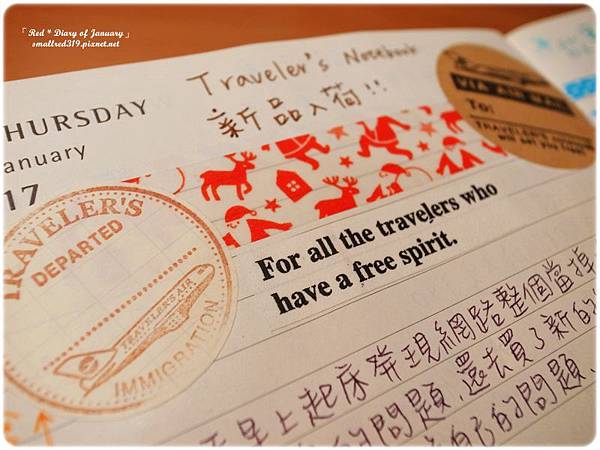 「Red * Diary of January」
smallred319.pixnet.net
THURSDAY
January
17
Traveler's Notebook
新品入荷!!
VIA AIR MAIL
To:
TRAVELER'S
TRAVELER'S
DEPARTED
TRAVELER'S AIR
IMMIGRATION
For all the travelers who
have a free spirit.
早上起床發現網路整個當掉
的問題、還去買了新的
自己的問題、